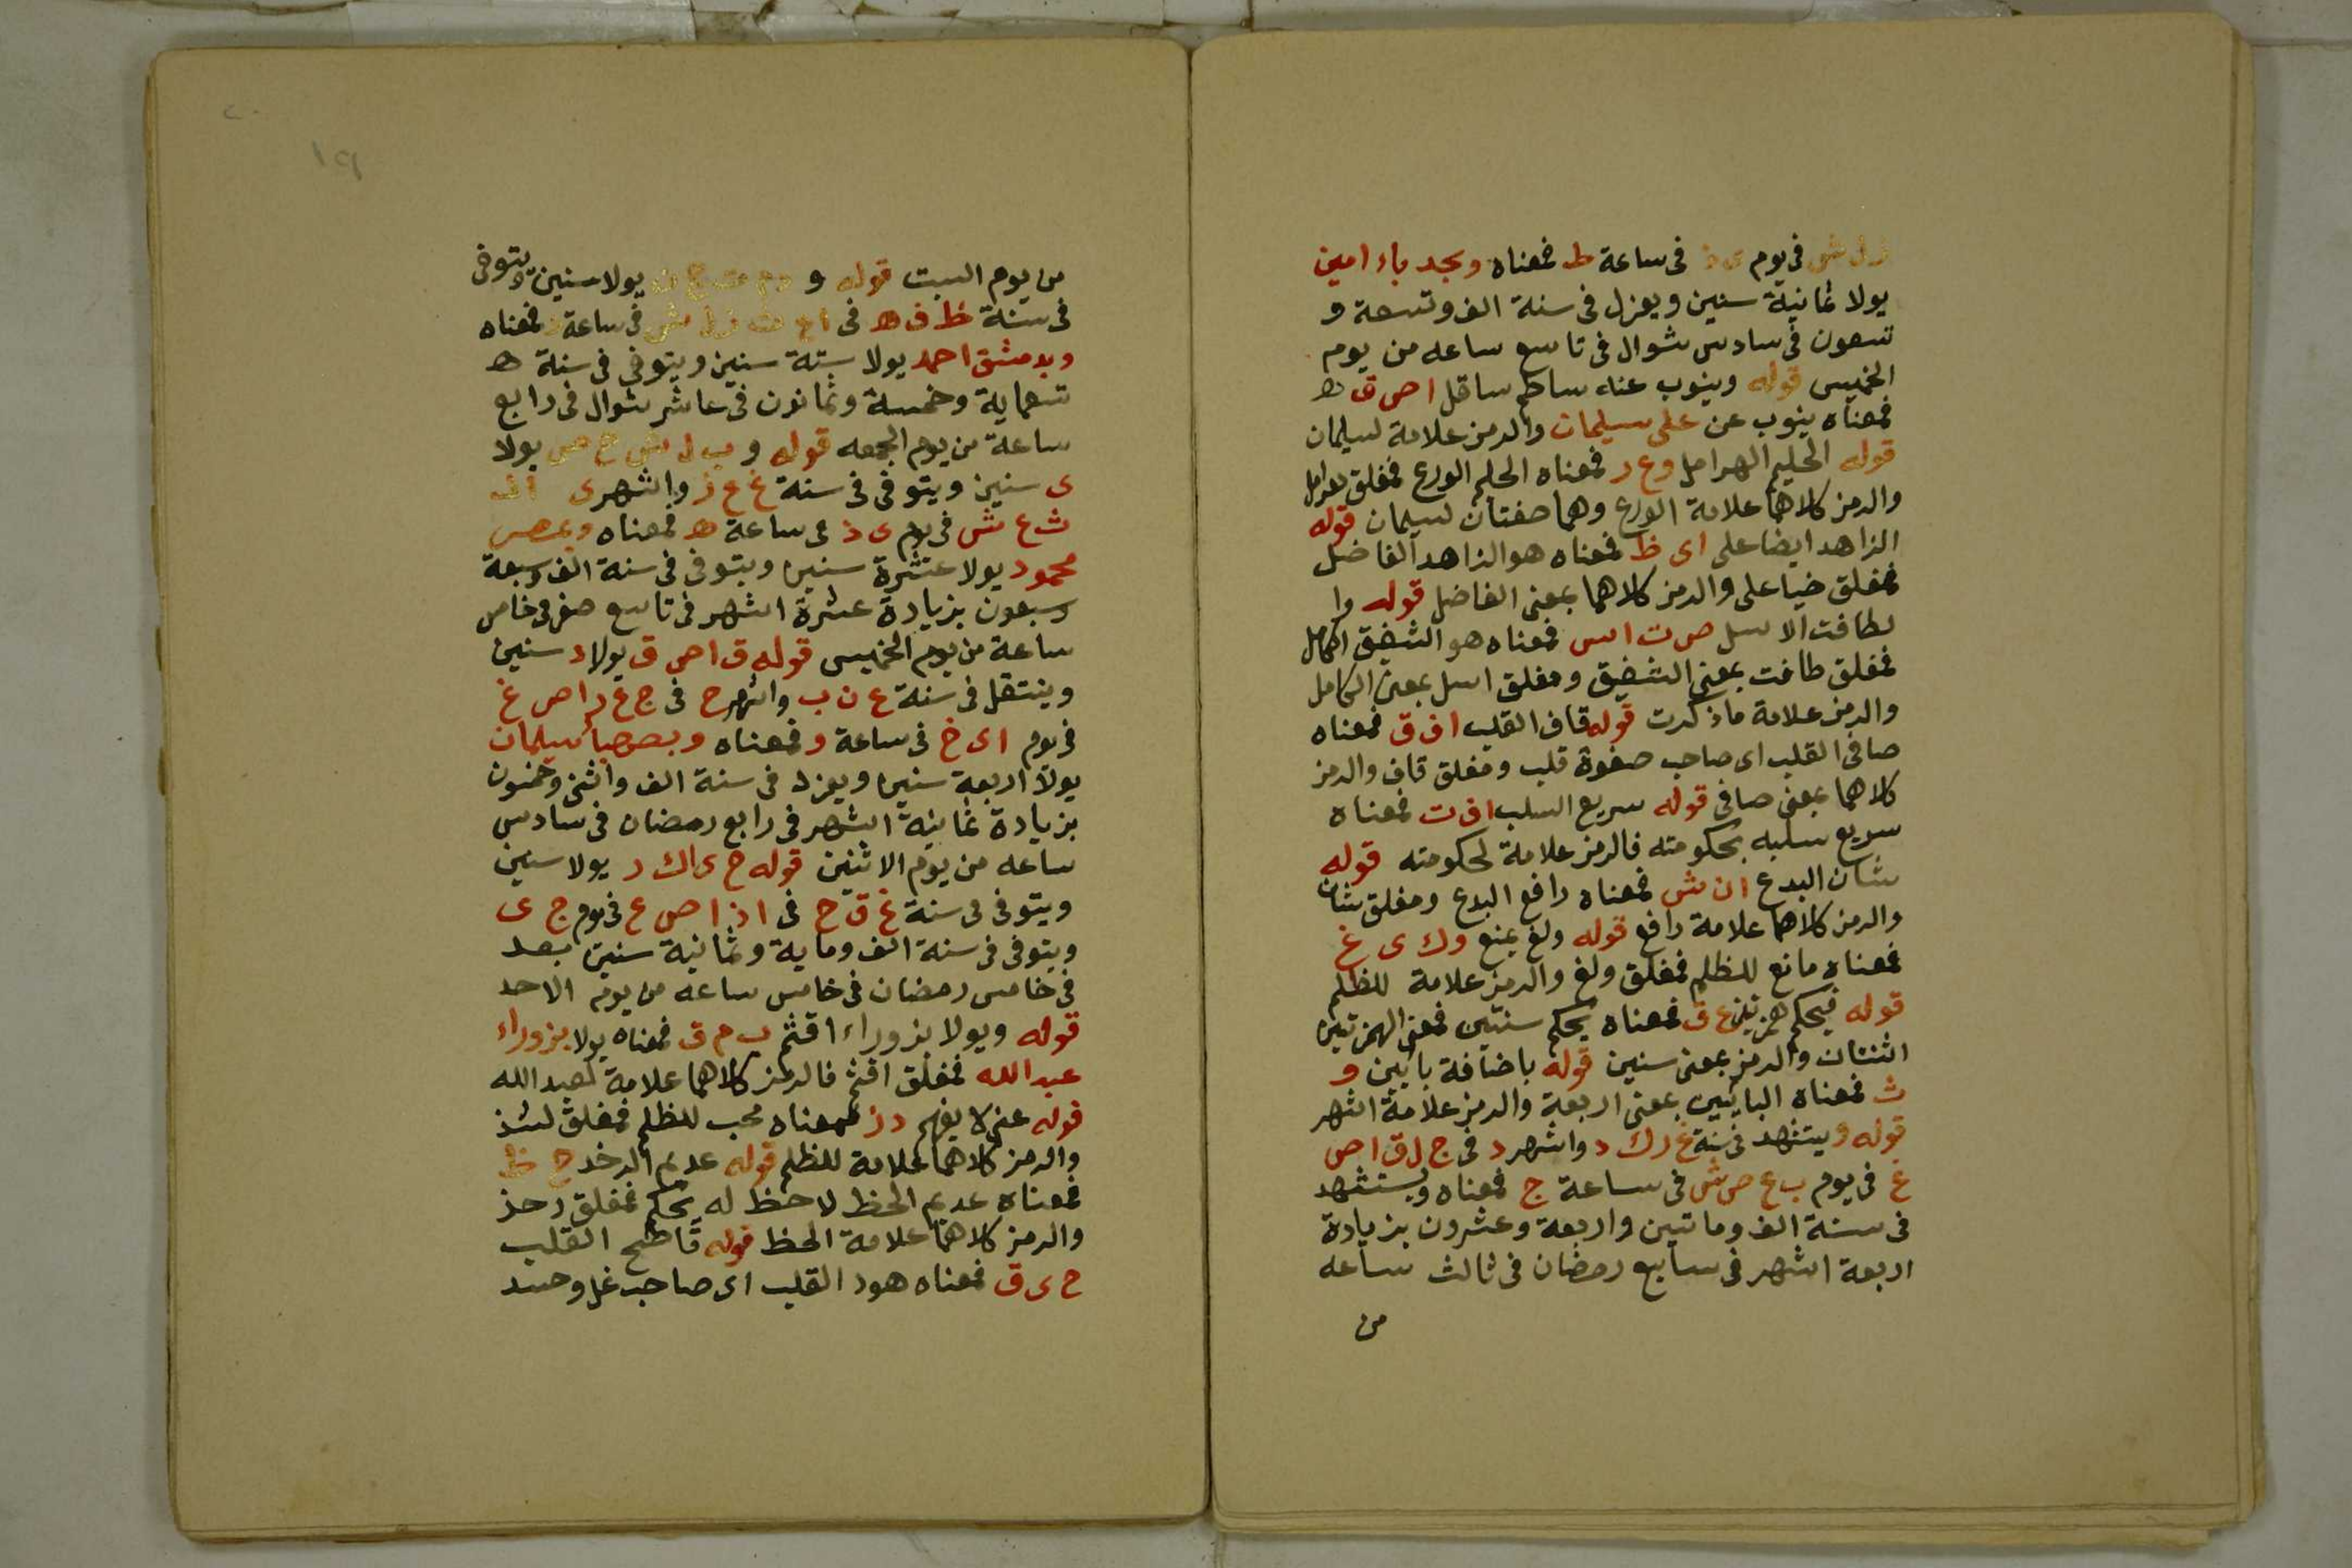 زل ش فى يوم ى ذ فى ساعة ط فمعناه وبجد باء امين
يولا ثمانية سنين ويعزل فى سنة الف وتسعة و
تسعون فى سادس شوال فى تاسع ساعه من يوم
الخميس قوله وينوب عنه ساطم ساقل ا ص ق ه
فمعناه ينوب عن على سليمان والرمز علامة لسليمان
قوله الحليم الهرامل وع ر فمعناه الحلم الورع فمغلق هرامل
والرمز كلاهما علامة الورع وهما صفتان لسليمان قوله
الزاهد ايضا على اى ظ فمعناه هو الزاهد الفاضل
فمغلق ضيا على والرمز كلاهما بمعنى الفاضل قوله وا
لطافت الاسل ص ت اس فمعناه هو الشفق الكامل
فمغلق طافت بمعنى الشفيق ومغلق اسل بمعنى الكامل
والرمز علامة ماذكرت قوله قاف القلب اف ق فمعناه
صافى القلب اى صاحب صفوة قلب ومغلق قاف والرمز
كلاهما بمعنى صافى قوله سريع السلب اف ت فمعناه
سريع سلبه بحكومته فالرمز علامة لحكومته قوله
شان البدع ان ش فمعناه رافع البدع ومغلق شان
والرمز كلاهما علامة رافع قوله ولغ يمنع وك ى غ
فمعناه مانع للظلم فمغلق ولغ والرمز علامة للظلم
قوله فيحكم همزتين ع ق فمعناه يحكم سنتين فمعنى الهمزتين
اثنتان والرمز بمعنى سنين قوله باضافة بائين و
ث فمعناه البائين بمعنى اربعة والرمز علامة اشهر
قوله ويستشهد فى سنة غ رك د واشهر د فى ج ل ق ا ص
غ فى يوم ب ع ص ش فى ساعة ج فمعناه ويستشهد
فى سنة الف وماتين واربعة وعشرون بزيادة
اربعة اشهر فى سابع رمضان فى ثالث ساعه
من
١٩
من يوم السبت قوله و يولا سنين ويتوفى
فى سنة ظ ف ه فى زل ش فى ساعة د فمعناه
وبدمشق احمد يولا ستة سنين ويتوفى فى سنة ه
تسعماية وخمسة وثمانون فى عاشر شوال فى رابع
ساعة من يوم الجمعه قوله و ب ل ش ح ص يولا
ى سنين ويتوفى فى سنة غ ع ز واشهر ى
ث ع ش فى يوم ى ذ فى ساعة ه فمعناه وبمصر
محمود يولا عشرة سنين ويتوفى فى سنة الف وسبعة
وسبعون بزيادة عشرة اشهر فى تاسع صفر فى خامس
ساعة من يوم الخميس قوله ق ا ص ق يولا د سنين
وينتقل فى سنة غ ن ب واشهر ح فى ج ع د ا ص غ
فى يوم اى خ فى ساعة و فمعناه وبصحبا سليمان
يولا اربعة سنين ويعزل فى سنة الف واثنى وخمسون
بزيادة ثمانية اشهر فى رابع رمضان فى سادس
ساعه من يوم الاثنين قوله ح ى اك ر يولا سنين
ويتوفى فى سنة غ ق ح فى اذ ا ص ع فى يوم ج ى
ويتوفى فى سنة الف وماية وثمانية سنين بعد
فى خامس رمضان فى خامس ساعه من يوم الاحد
قوله ويولا بزوراء اقثم ب م ق فمعناه يولا بزوراء
عبدالله فمغلق اقثم فالرمز كلاهما علامة لعبدالله
قوله عنى لا يفهم د ز فمعناه محب للظلم فمغلق لشذ
والرمز كلاهما علامة للظلم قوله عديم الرخذ ح ظ
فمعناه عديم الحظ لا حظ له يحكم فمغلق رخذ
والرمز كلاهما علامة الحظ قوله قاطح القلب
ح ى ق فمعناه هود القلب اى صاحب غل وحسد